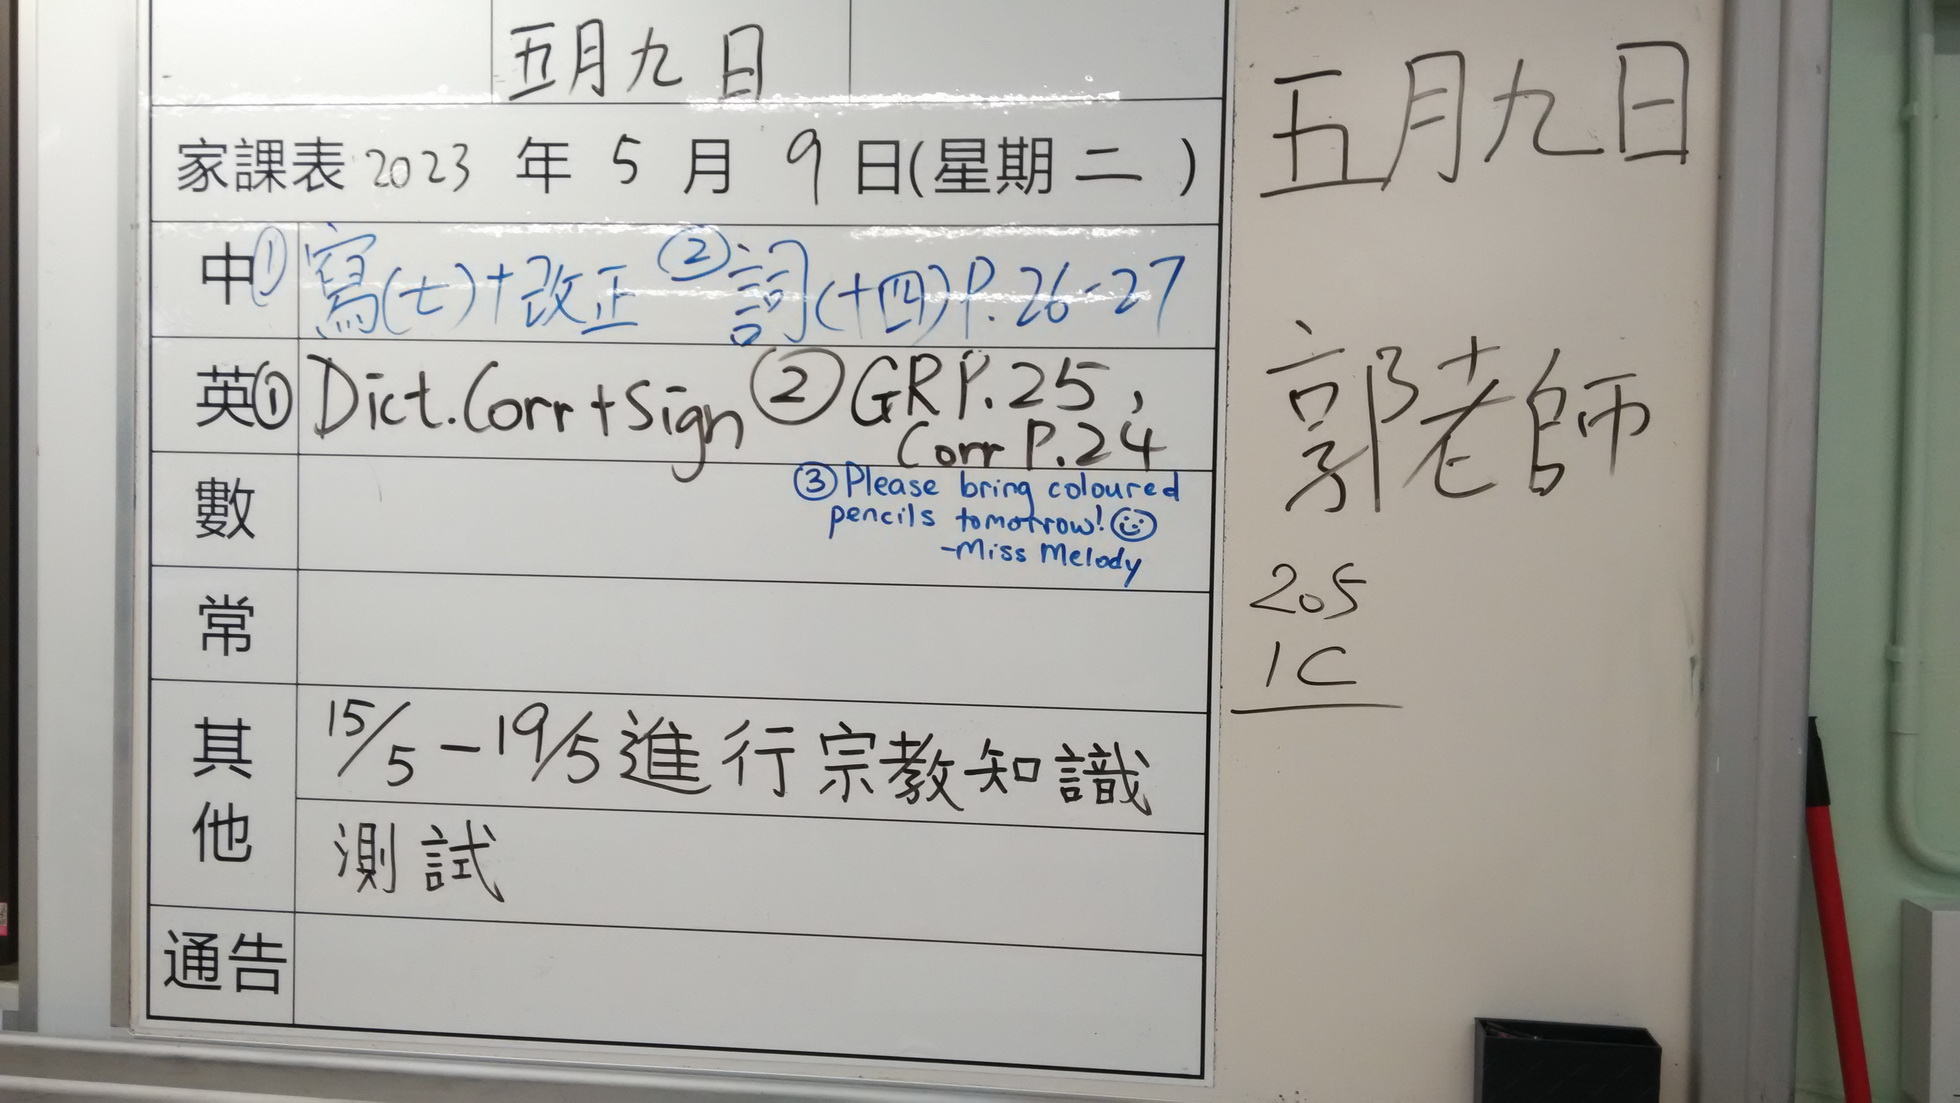 五月九日
家課表 2023 年 5 月 9 日(星期 二 )
中 ① 寫(七)+改正 ② 詞(十四)P.26-27
英 ① Dict. Corr + Sign ② GR P.25,
Corr P.24
數
③ Please bring coloured
pencils tomorrow! ☺
-Miss Melody
常
其他
15/5 - 19/5 進行宗教知識
測試
通告
五月九日
郭老師
205
1C